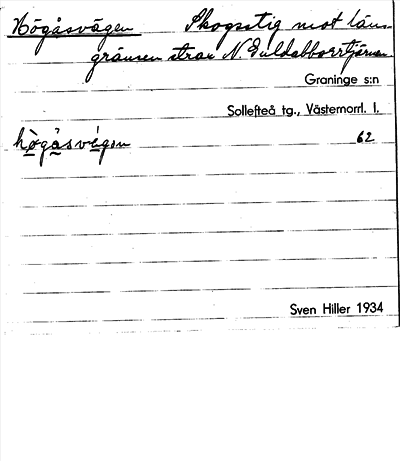 Högåsvägen Skogsstig mot läns-
gränsen strax N. Guldabborrtjärnen
Graninge s:n
Sollefteå tg., Västernorrl. l.
hø̀gåsvégən 62
Sven Hiller 1934